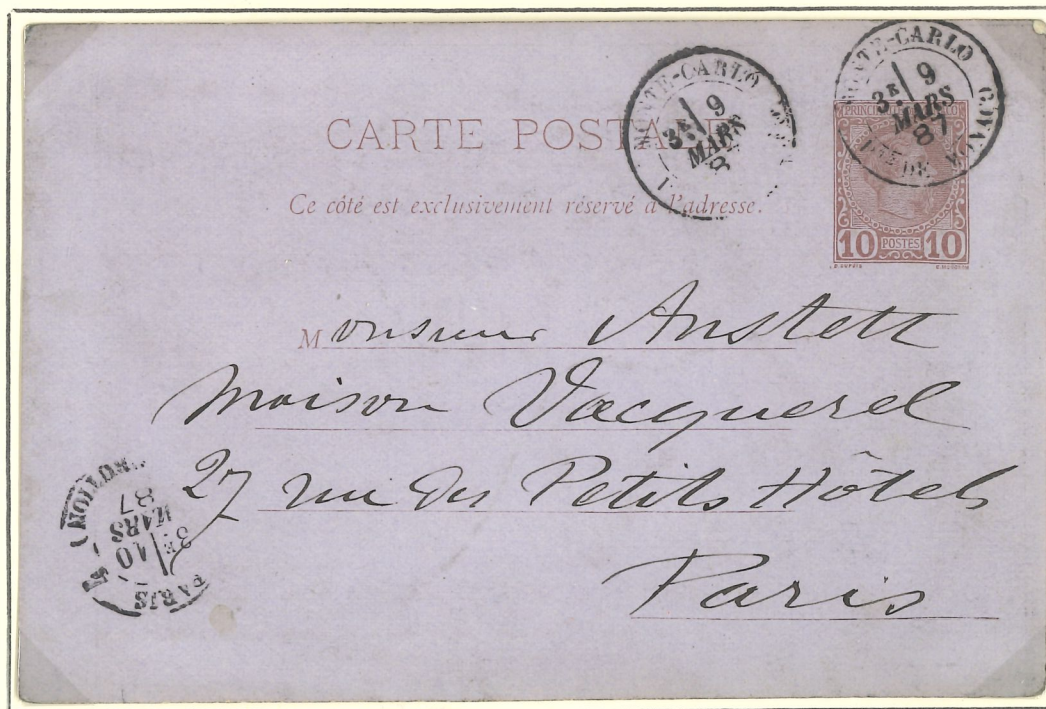 CARTE POSTALE
Ce côté est exclusivement réservé à l'adresse.
MONTE-CARLO
3E 9
MARS
87
MONTE-CARLO
3E 9
MARS
87
PTÉ DE MONACO
PRINCIPAUTÉ DE MONACO
10 POSTES 10
Monsieur Anstett
Maison Vacquerel
27 rue des Petits Hôtels
Paris
PARIS
3E 10
MARS
87